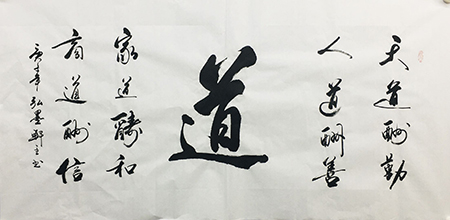 天道酬勤
人道酬善
道
家道醻和
商道酬信
弘墨軒主书